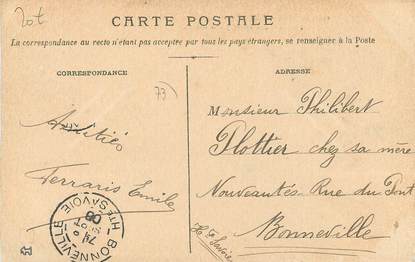 20t
CARTE POSTALE
La correspondance au recto n'étant pas acceptée par tous les pays étrangers, se renseigner à la Poste
CORRESPONDANCE
73)
Amitiés
Ferraris Emile
ADRESSE
Monsieur Philibert
Plottier chez sa mère
Nouveautés Rue du Pont
Bonneville
Hte Savoie
BONNEVILLE
Hte SAVOIE
08